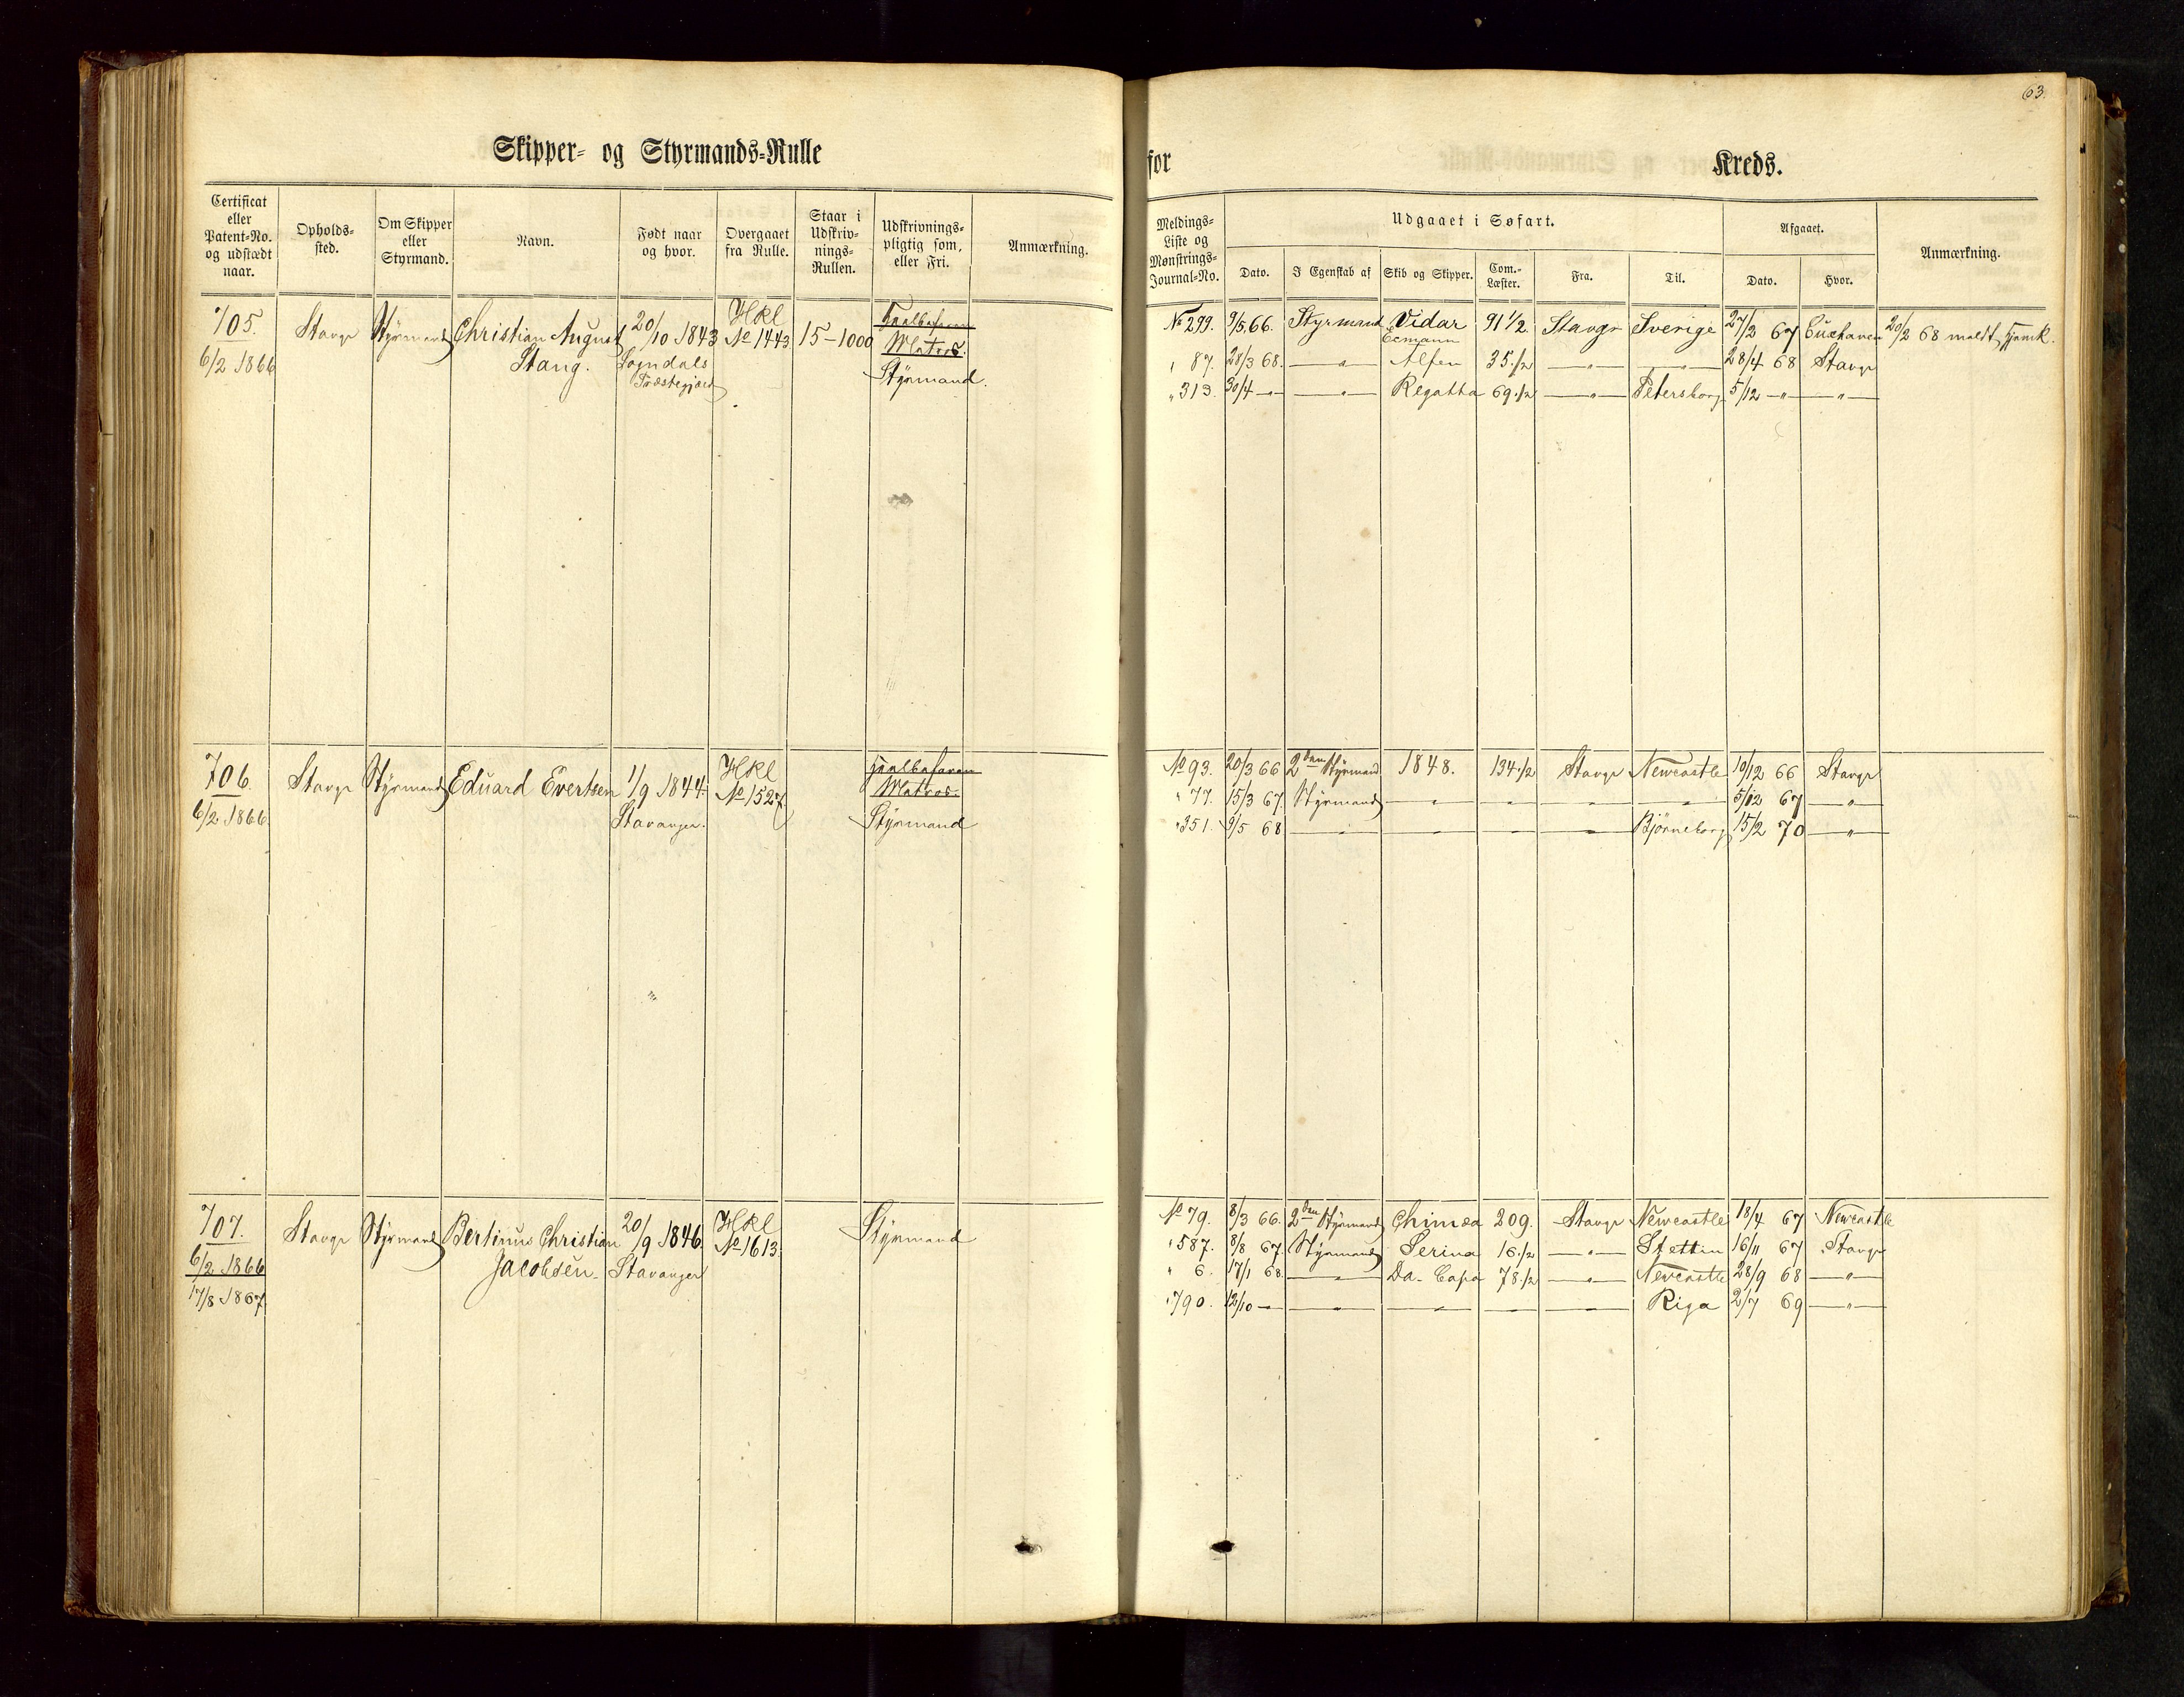 63.
Skipper- og Styrmands-Rulle
for Kreds.
Certificat eller Patent-No. og udstædt naar.
Opholds-sted.
Om Skipper eller Styrmand.
Navn.
Født naar og hvor.
Overgaaet fra Rulle.
Staar i Udskriv-nings-Rullen.
Udskrivnings-pligtig som, eller Fri.
Anmærkning.
Meldings-Liste og Mønstrings-Journal-No.
Udgaaet i Søfart.
Dato.
I Egenskab af
Skib og Skipper.
Com.-Læster.
Fra.
Til.
Afgaaet.
Dato.
Hvor.
Anmærkning.
705. Stavgr Styrmand Christian August 20/10 1843 Hkl No 1443 15-1000 Matros.
6/2 1866 Stang. Sogndals Præstegjæld Styrmand.
No 299. 9/5 66. Styrmand Vidar 91 1/2 Stavgr Sverige 27/3 67 Cuxhaven 20/2 68 meldt hjemk.
" 87. 28/3 68. — " — Alfen 35 1/2 — " — — " — 28/4 68 Stavgr
" 313. 30/4 — " — — " — Regatta 69 1/2 — " — Petersborg 5/12 — " — — " —
706. Stavgr Styrmand Eduard Evertsen 1/9 1844. Hkl No 1527. jvalbefaren Matros.
6/2 1866. Stavanger. Styrmand
No 93. 20/3 66 2den Styrmand 1848. 134 1/2 Stavgr Newcastle 10/12 66 Stavgr
" 77. 15/3 67. Styrmand — " — — " — — " — — " — 5/12 67 — " —
" 351. 9/5 68 — " — — " — — " — — " — Bjørneborg 15/2 70 — " —
707. Stavgr Styrmand Bertinus Christian 20/9 1846. Hkl No 1613. Styrmand
6/2 1866 Jacobsen. Stavanger
17/8 1867.
No 79. 8/3 66. 2den Styrmand Chimæa 209. Stavgr Newcastle 18/4 67 Newcastle
" 587. 8/8 67. Styrmand Serina 16 1/2 — " — Stettin 16/11 67 Stavgr
" 6. 17/1 68. — " — Da-Capo 78 1/2 — " — Newcastle 28/9 68 — " —
" 790. 12/10 — — " — — " — — " — — " — Riga 2/7 69 — " —